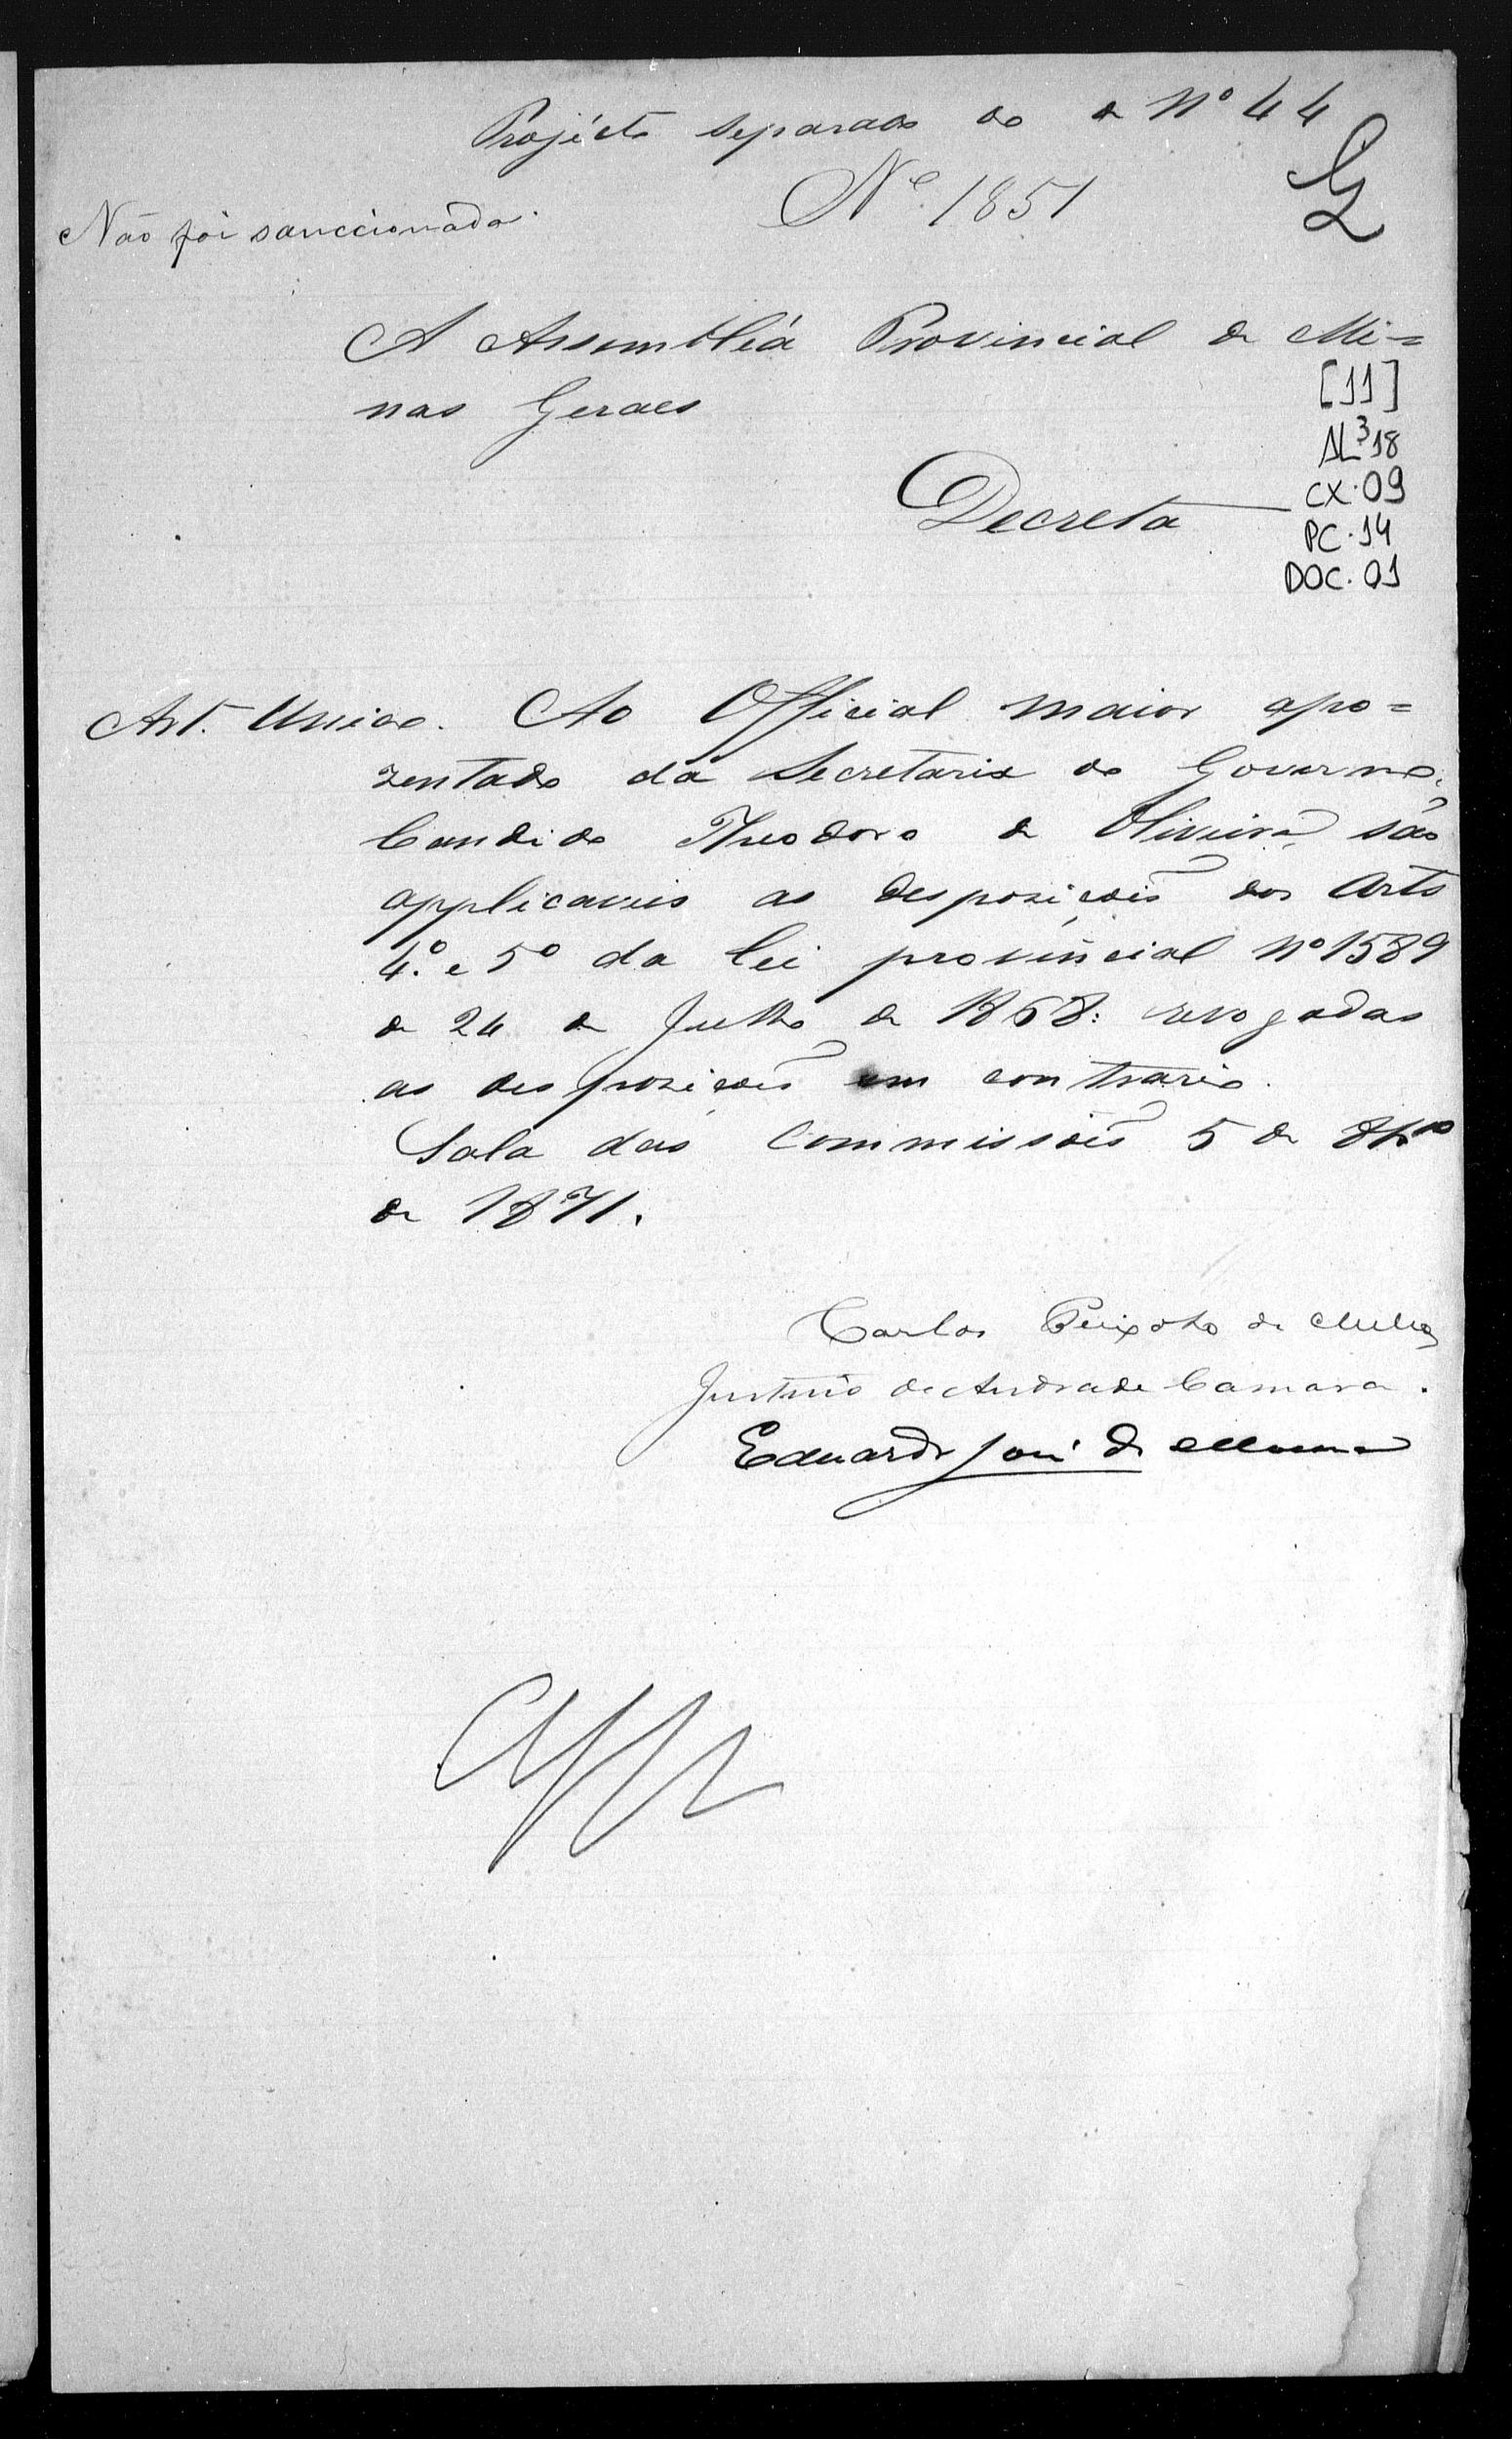 Projécto separado do de Nº 44
Nº 1851
Não foi sanccionado.
A Assembléa Provincial de Mi=
nas Geraes
[11]
AL³18
CX.09
PC.14
DOC.01
Decreta
Art. Unico. Ao Official maior apo=
zentado da Secretaria do Governo,
Candido Theodoro de Oliveira, são
applicaveis as desposições dos Arts
4.º e 5º da lei provincial Nº 1589
de 24 de Julho de 1868: revogadas
as desposições em contrario.
Sala das Commissões 5 de
de 1871.
Carlos Peixoto de Mello
Justino de Andrade Camara.
Eduardo José de Moura